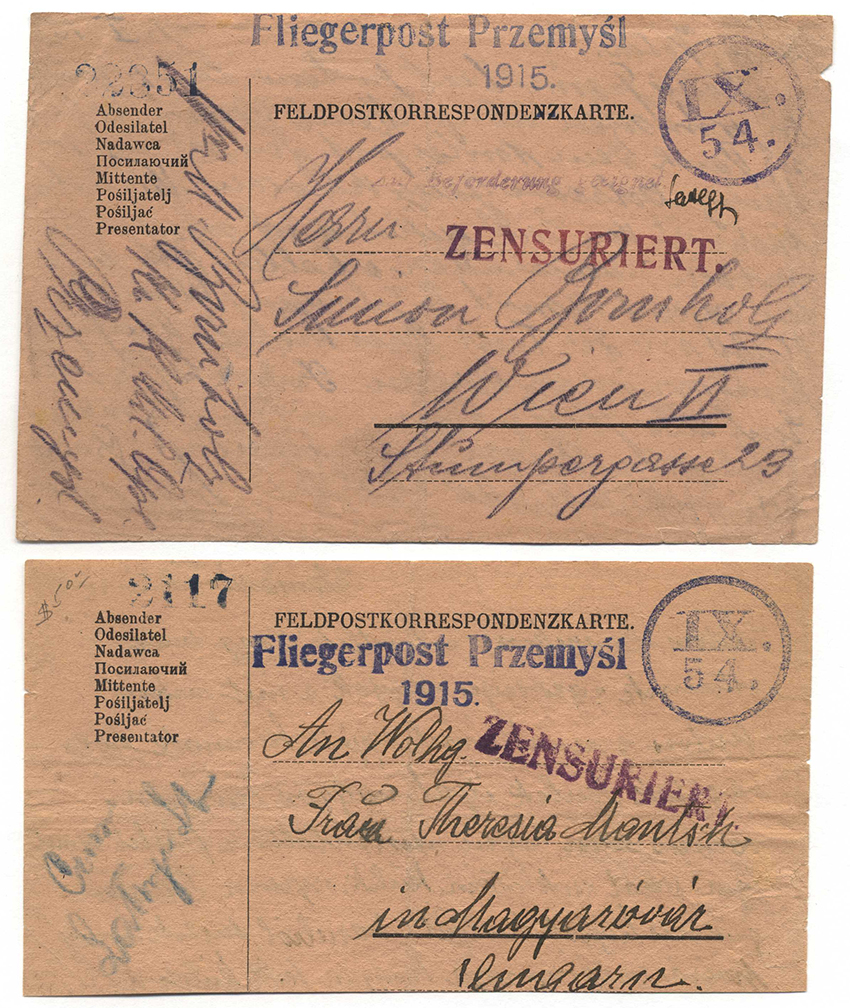 Fliegerpost Przemyśl
1915.
22351
IX.
54.
Absender
Odesilatel
Nadawca
Посилаючий
Mittente
Pošiljatelj
Pošiljač
Presentator
FELDPOSTKORRESPONDENZKARTE.
Herrn
ZENSURIERT.
Simon Bornholz
Wien II
Stumpergasse 23
2117
IX.
54.
Absender
Odesilatel
Nadawca
Посилаючий
Mittente
Pošiljatelj
Pošljač
Presentator
FELDPOSTKORRESPONDENZKARTE.
Fliegerpost Przemyśl
1915.
An Wolhg.
ZENSURIERT.
Frau Theresia
in Magyaróvár
Ungarn.